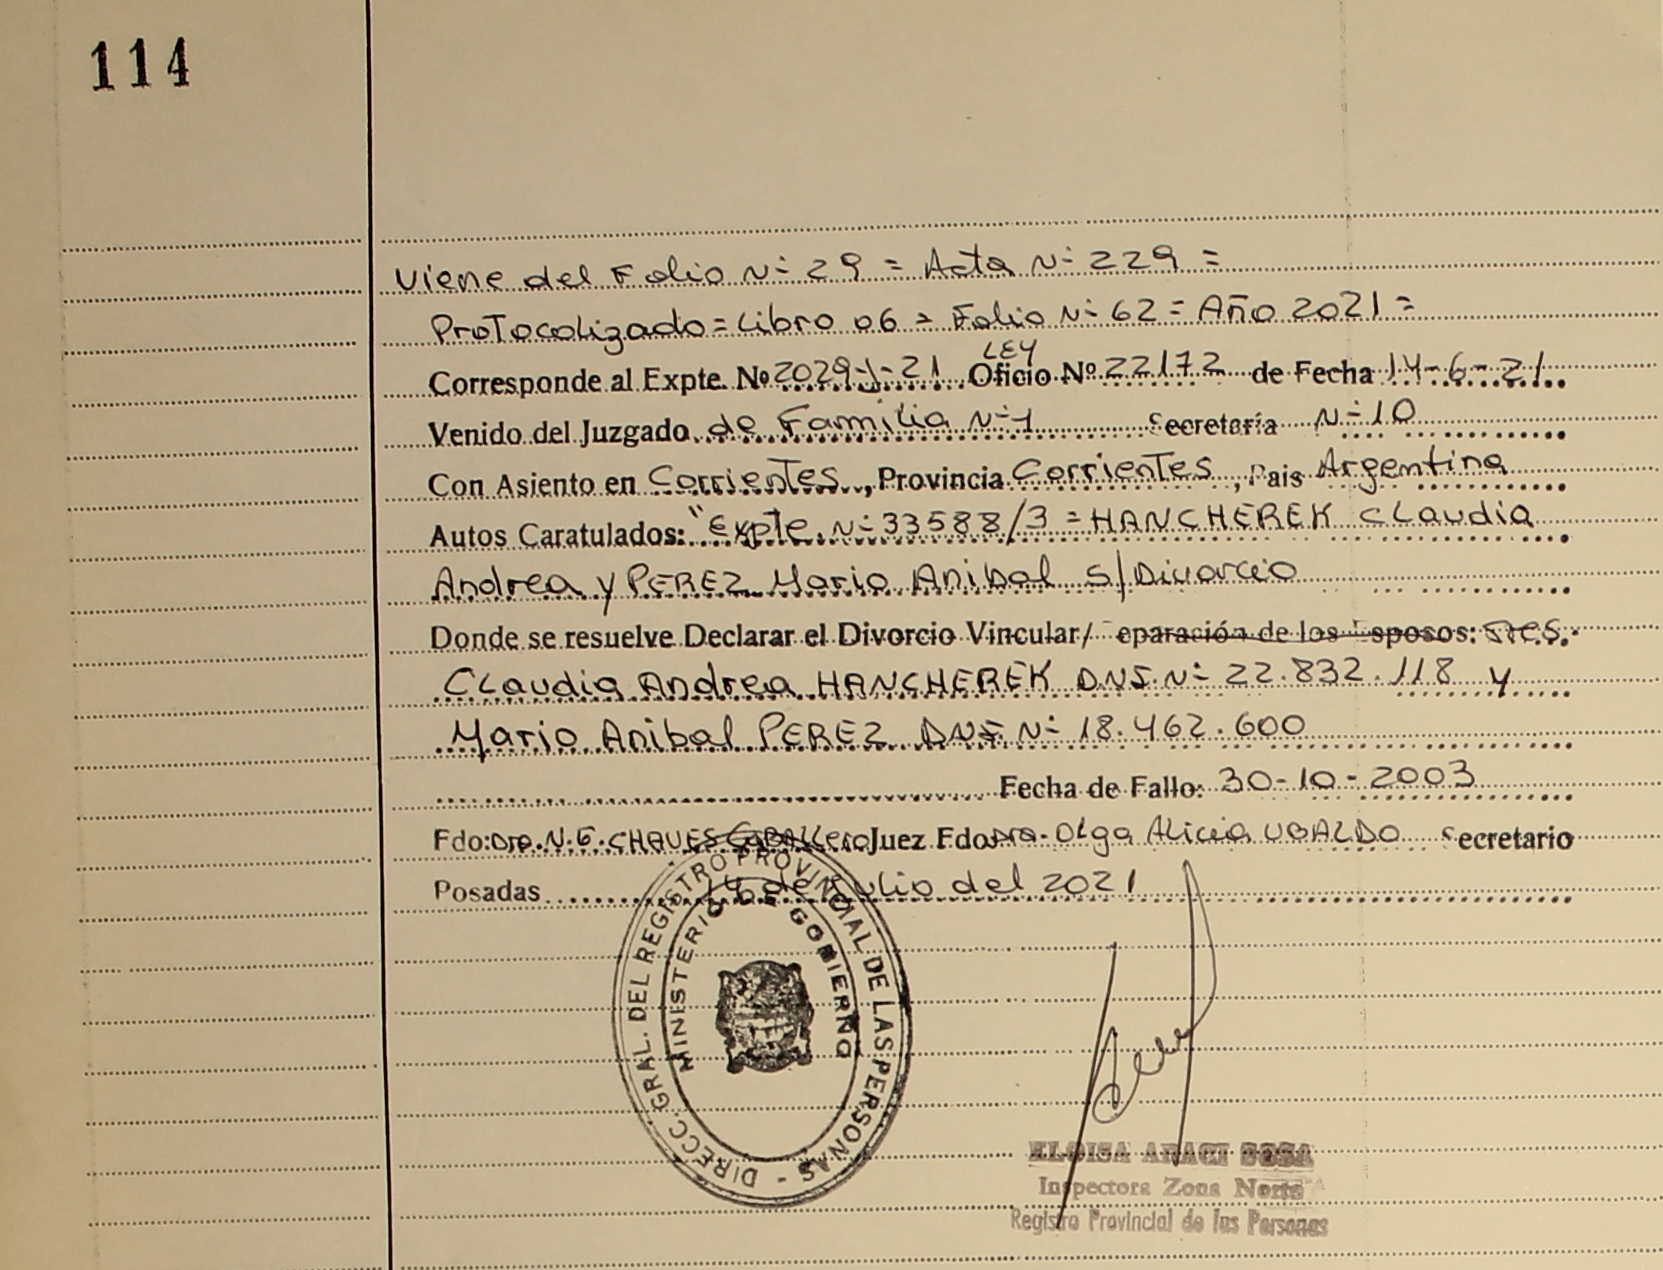 114
Viene del Folio Nº 29 = Acta Nº 229 =
Protocolizado = Libro 06 = Folio Nº 62 = Año 2021 =
LEY
Corresponde al Expte. Nº 2029-J-21 Oficio Nº 22172 de Fecha 14-6-21
Venido del Juzgado de Familia Nº 1 Secretaría Nº 10
Con Asiento en Corrientes, Provincia Corrientes, Pais Argentina
Autos Caratulados: "Expte. Nº 33588/3 = HANCHEREK Claudia
Andrea y PEREZ Mario Anibal S/Divorcio
Donde se resuelve Declarar el Divorcio Vincular/ Separación de los Esposos: Sres.
Claudia Andrea HANCHEREK D.N.I. Nº 22.832.118 y
Mario Anibal PEREZ DNI. Nº 18.462.600
Fecha de Fallo: 30-10-2003
Fdo: Dra. N.E. CHAVES CABALLero Juez Fdo Dra. Olga Alicia UBALDO Secretario
Posadas 14 de Julio del 2021
DIRECC. GRAL. DEL REGISTRO PROVINCIAL DE LAS PERSONAS -
MINESTERIO DE GOBIERNO
ELOISA ARACI SOSA
Inspectora Zona Norte
Registro Provincial de las Personas